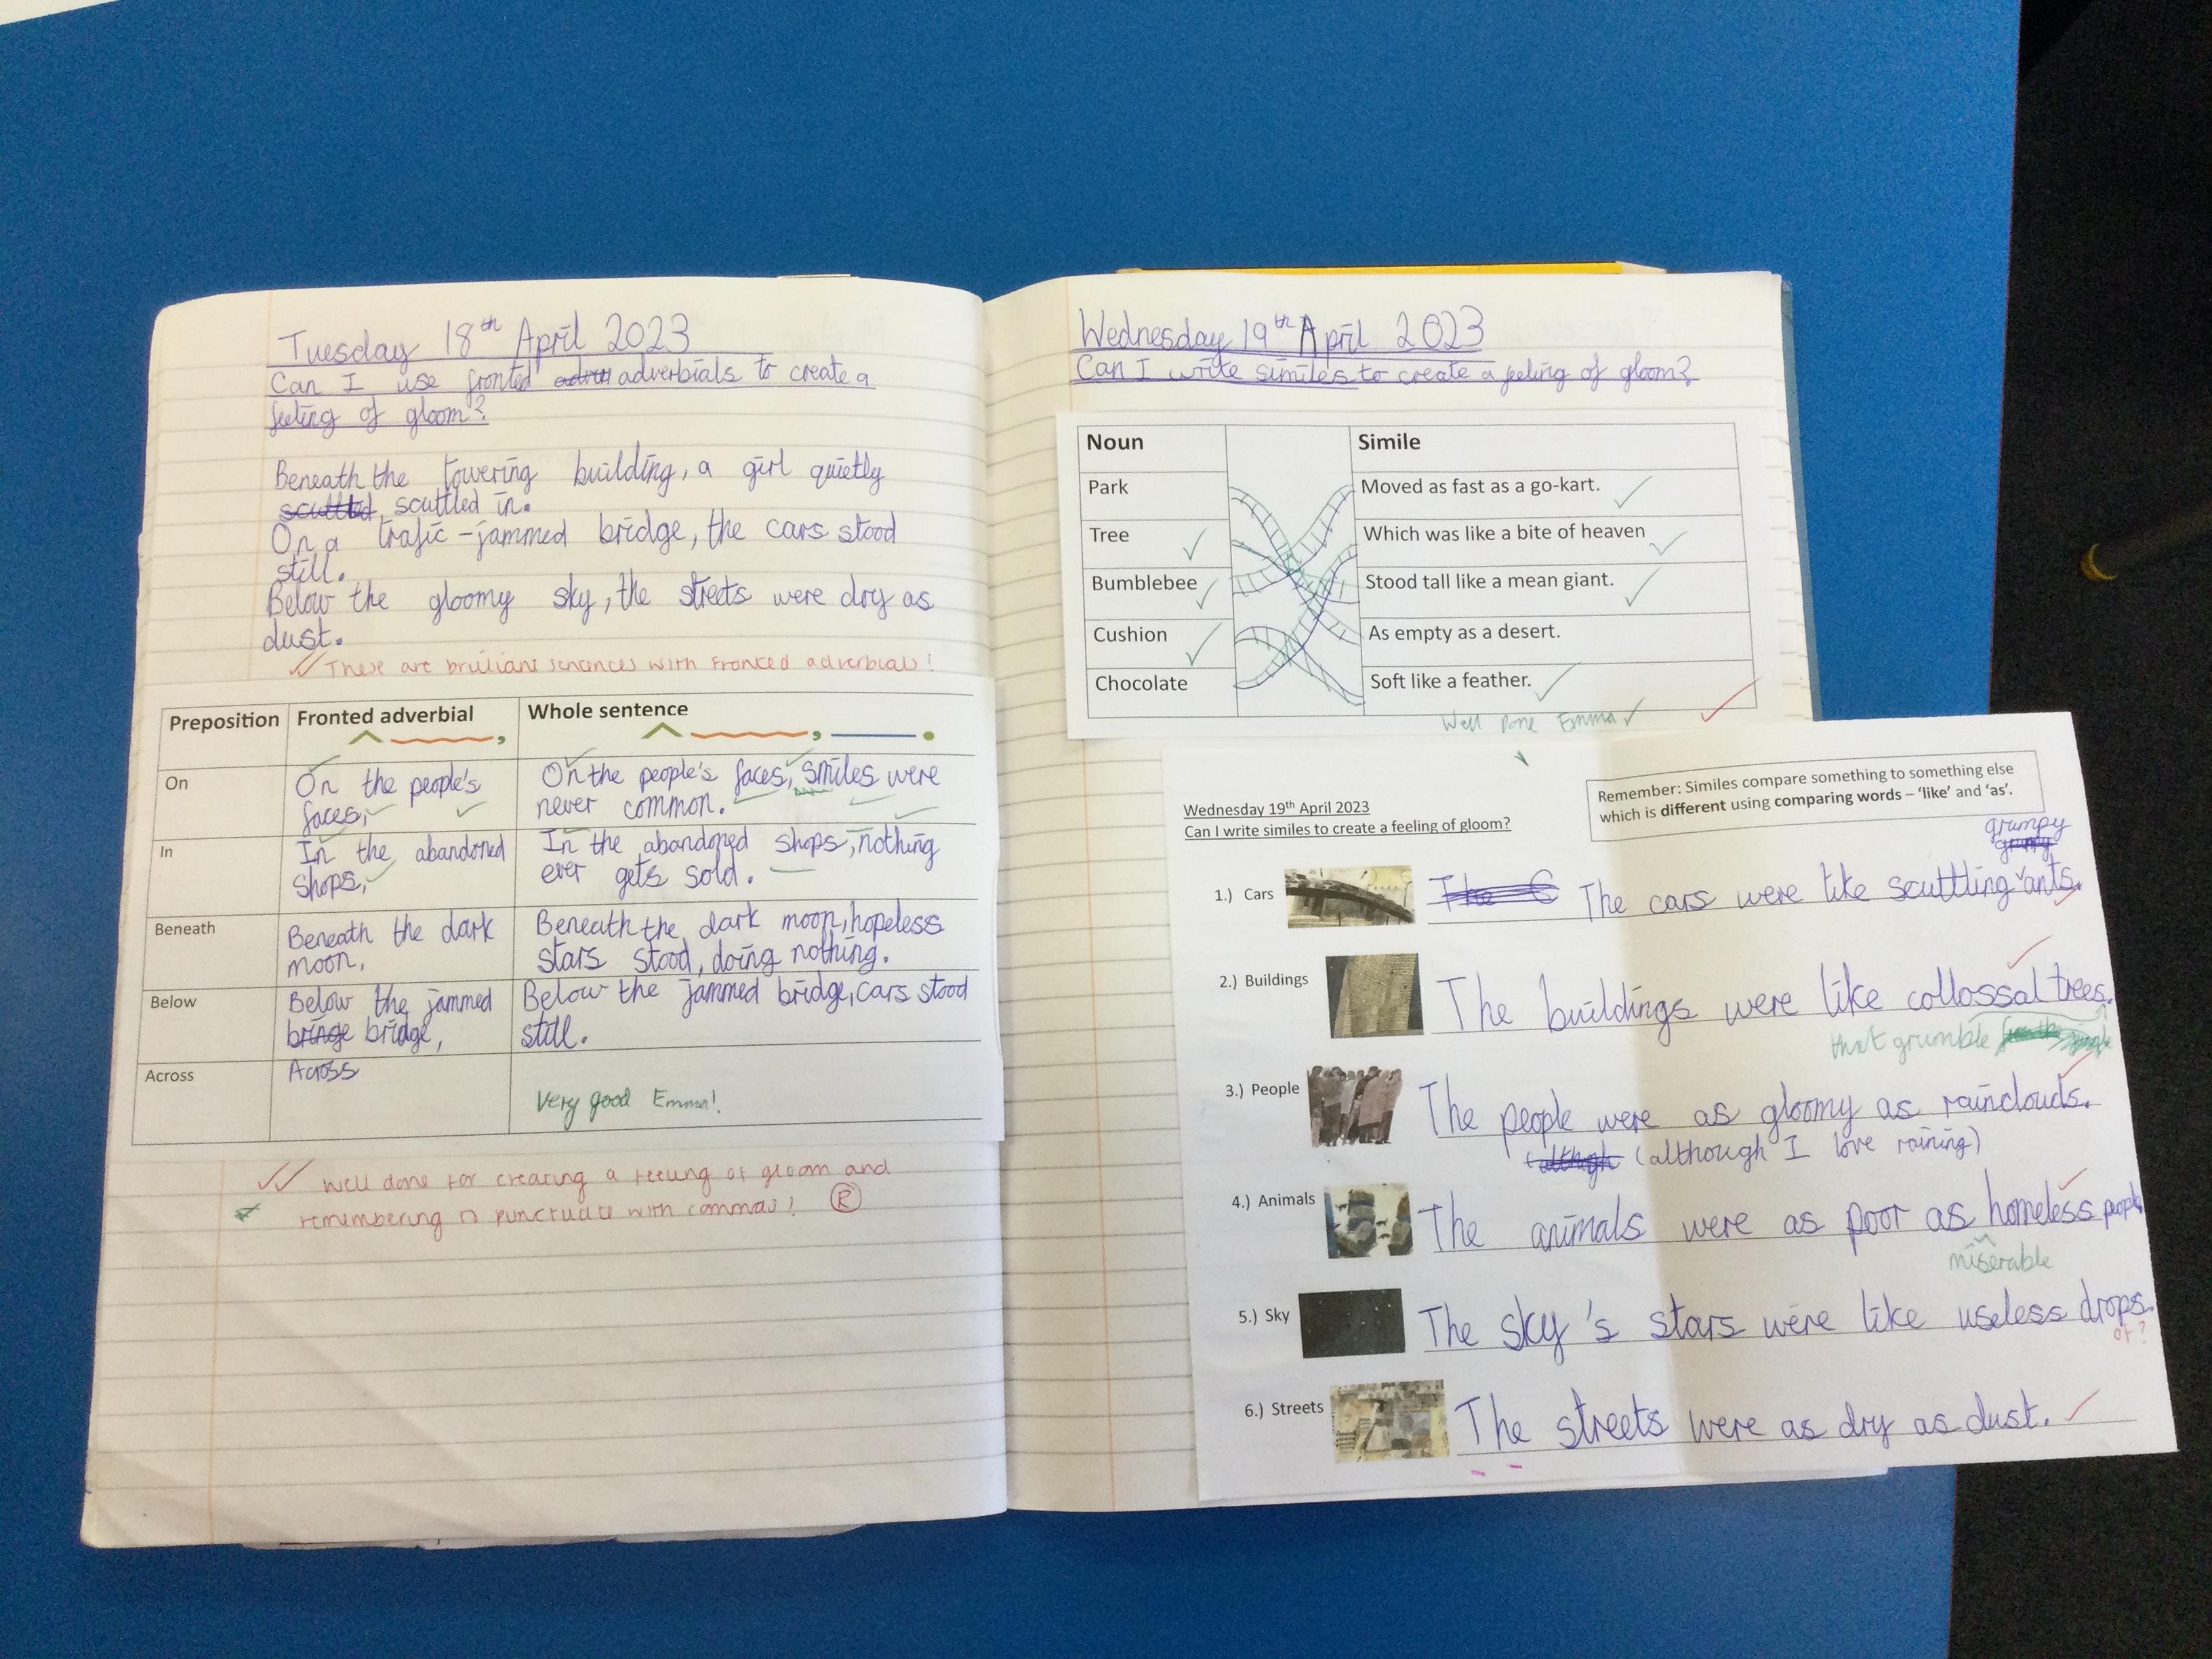 Tuesday 18th April 2023
Can I use fronted adverbials to create a
feeling of gloom?
Beneath the towering building, a girl quietly
scuttled scuttled in.
On a trafic-jammed bridge, the cars stood
still.
Below the gloomy sky, the streets were dry as
dust.
These are brilliant sentences with fronted adverbials!
Preposition Fronted adverbial Whole sentence
On
On the people's
faces,
On the people's faces, smiles were
never common.
In
In the abandoned
shops,
In the abandoned shops, nothing
ever gets sold.
Beneath
Beneath the dark
moon,
Beneath the dark moon, hopeless
stars stood, doing nothing.
Below
Below the jammed
bringe bridge,
Below the jammed bridge, cars stood
still.
Across
Across
Very good Emma!
Well done for creating a feeling of gloom and
remembering to punctuate with commas! R
Wednesday 19th April 2023
Can I write similes to create a feeling of gloom?
Noun Simile
Park Moved as fast as a go-kart.
Tree Which was like a bite of heaven
Bumblebee Stood tall like a mean giant.
Cushion As empty as a desert.
Chocolate Soft like a feather.
Well Done Emma
Wednesday 19th April 2023
Can I write similes to create a feeling of gloom?
Remember: Similes compare something to something else
which is different using comparing words – 'like' and 'as'.
grumpy
1.) Cars The C The cars were like scuttling ants.
2.) Buildings The buildings were like collossal trees.
that grumble
3.) People The people were as gloomy as rainclouds.
(although (although I love raining)
4.) Animals The animals were as poor as homeless people
miserable
5.) Sky The sky's stars were like useless drops.
of?
6.) Streets The streets were as dry as dust.